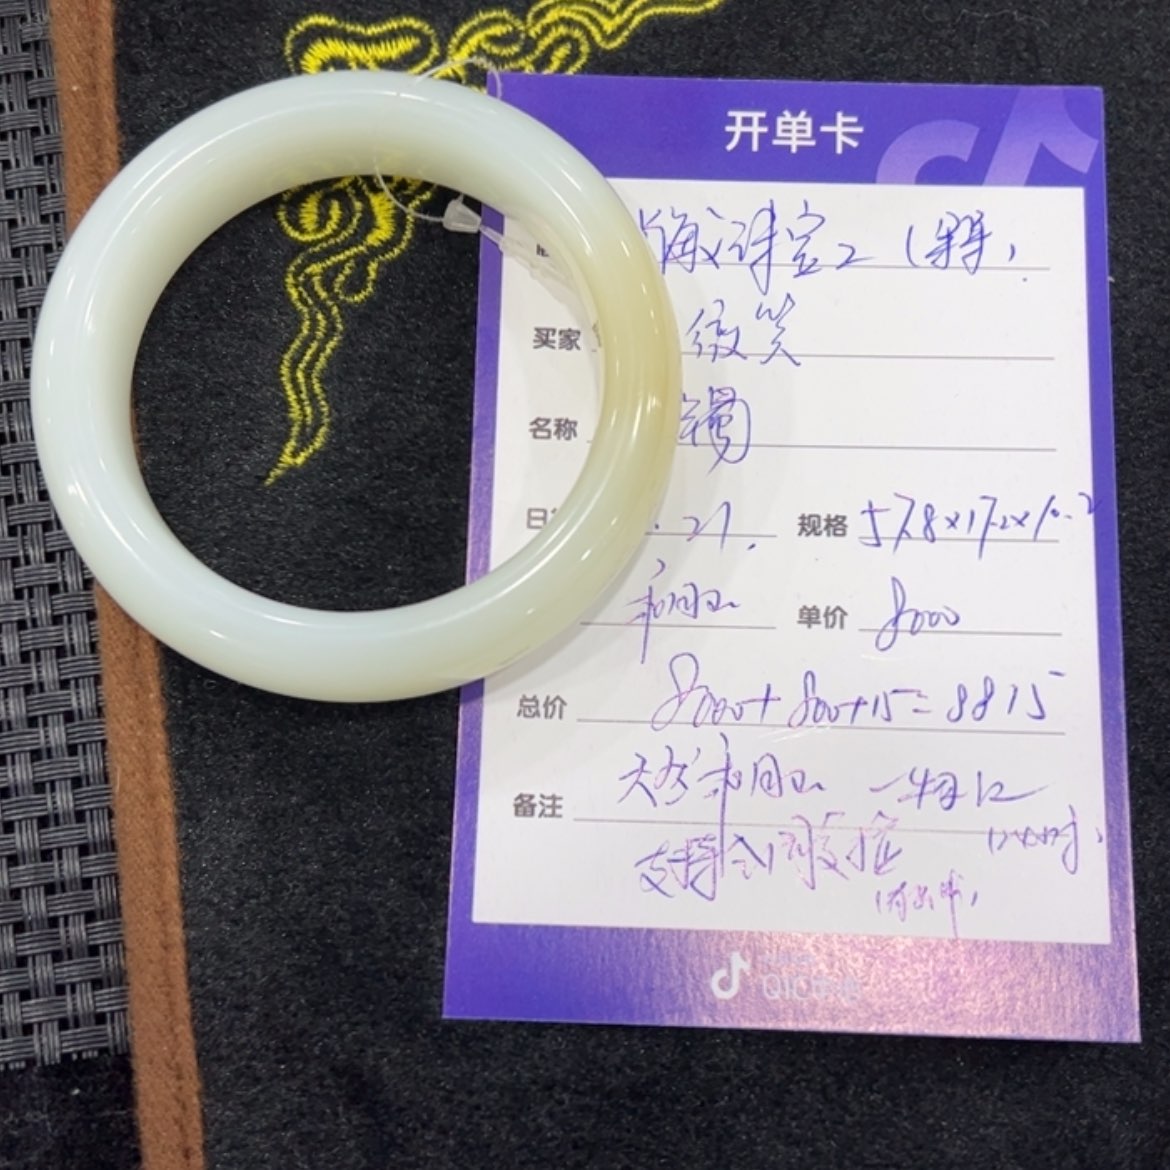 开单卡
海成珠宝2
买家 微笑
名称 镯
.21. 规格 57.8×17.2×10.2
和田玉 单价 8000
总价 8000+800+15=8815
备注 天然和田玉 一物一
支持全国复检